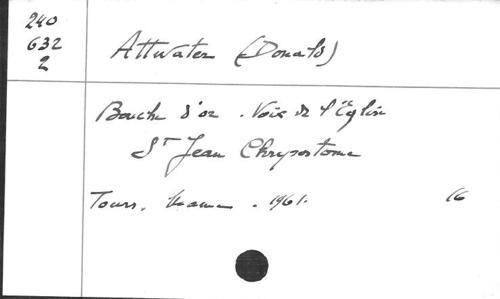 240
632
2
Attwater (Donald)
Bouche d'or. Voix de l'Église
St Jean Chrysostome
Tours, Mame. 1961. 16